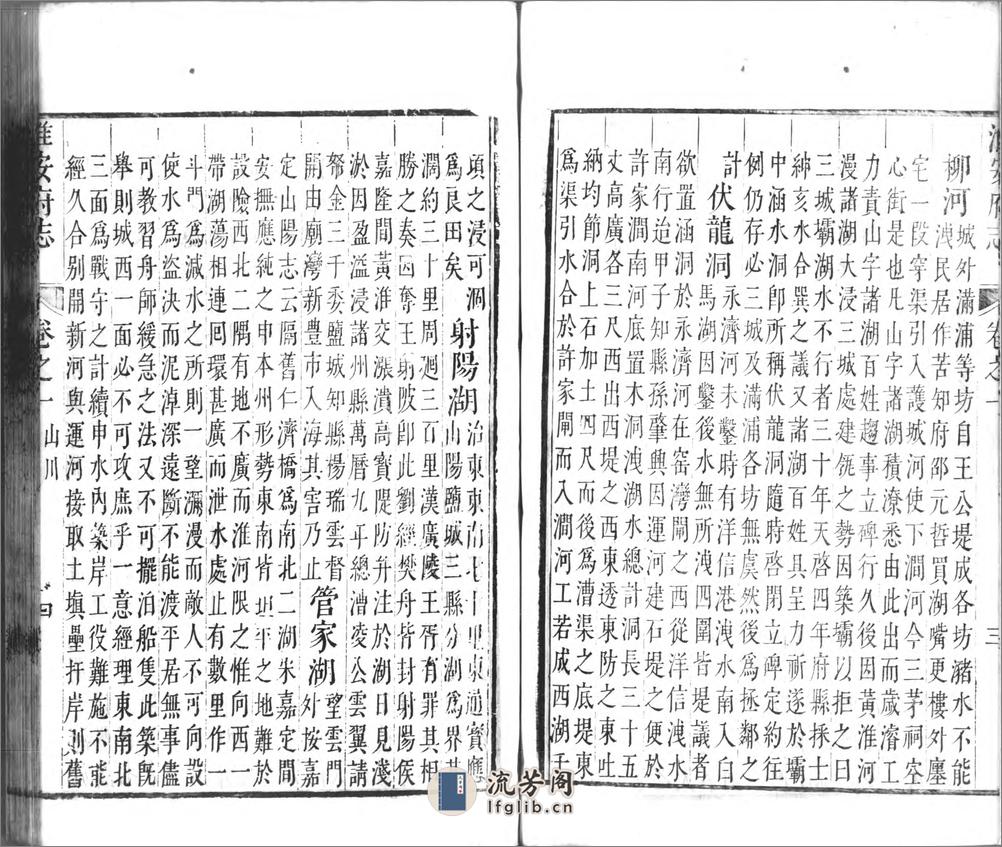 淮安府志
卷之一
三
柳河城外滿浦等坊自王公堤成各坊瀦水不能
洩民居作苦知府邵元哲買湖嘴更樓外廛
宅一段寧渠引入護城河使下澗河今三茅祠空
心街是也凡山字諸湖積潦悉由此出而歲濬工
力責山字諸湖百姓趨事立碑行久後因黃淮河
漫諸湖大浸三城處建瓴之勢因築壩以拒之曰
三城壩湖水不行者三十年天啓四年府縣採士
紳亥水合巽之議又諸湖百姓具呈力祈遂於壩
中涵水洞卽所稱伏龍洞隨時啓閉立碑定約往
例仍存必三城及滿浦各坊無虞然後爲拯鄰之
計伏龍洞永濟河未鑿時有洋信港洩水南入白
馬湖因鑿後水無所洩四圍皆堤議者
欲置涵洞於永濟河在窑灣閘之西從洋信洩水
南行迨甲子知縣孫肇興因運河建石堤之便於
許家澗南河底置木洞洩湖水總計洞長三十五
丈高廣各三尺出西堤之西東透東防之東吐
納均節洞上石加土四尺而後爲漕渠之底堤東
爲渠引水合於許家閘而入澗河工若成西湖千
頃之浸可涸
爲良田矣射陽湖治東東南七十里東通寶應
山陽鹽城三縣分湖爲界其
濶約三十里周迴三百里漢廣陵王胥有罪其相
勝之奏因奪王射陂卽此劉經樊舟皆封射陽侯
嘉隆間黃淮交漲潰高寶隄防并注於湖日見淺
淤因盈溢浸諸州縣萬曆九年總漕凌公雲翼請
帑金三千委鹽城知縣楊瑞雲督
開由廟灣新豐市入海其害乃止管家湖望雲門
外按嘉
定山陽志云隔舊仁濟橋爲南北二湖朱嘉定間
安撫應純之申本州形勢東南皆坦平之地難於
設險西北二隅有地不廣而淮河限之惟向西一
帶湖蕩相連回環甚廣而泄水處止有數里作一
斗門爲減水之所則一望瀰漫而敵人不可向設
使水爲盜決而泥淖深遠斷不能渡平居無事儘
可教習舟師緩急之法又不可擺泊船隻此築旣
舉則城西一面必不可攻庶乎一意經理東南北
三面爲戰守之計續申水內築岸工役難施不能
經久合別開新河與運河接取土填壘圩岸則舊
淮安府志
卷之一
山川
四
流芳阁
lfglib.cn